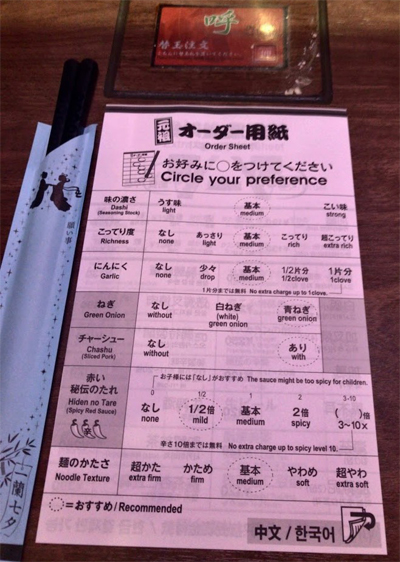 呼
替玉注文
元祖 オーダー用紙
Order Sheet
お好みに○をつけてください
Circle your preference
味の濃さ Dashi (Seasoning Stock)
うす味 light
基本 medium
こい味 strong
こってり度 Richness
なし none
あっさり light
基本 medium
こってり rich
超こってり extra rich
にんにく Garlic
なし none
少々 drop
基本 medium
1/2片分 1/2clove
1片分 1clove
1片分までは無料 No extra charge up to 1clove.
ねぎ Green Onion
なし without
白ねぎ (white) green onion
青ねぎ green onion
チャーシュー Chashu (Sliced Pork)
なし without
あり with
赤い秘伝のたれ Hiden no Tare (Spicy Red Sauce)
お子様には「なし」がおすすめ The sauce might be too spicy for children.
0 1/2 1 2 3-10
なし none
1/2倍 mild
基本 medium
2倍 spicy
( )倍 3~10×
辛さ10倍までは無料 No extra charge up to spicy level 10.
麺のかたさ Noodle Texture
超かた extra firm
かため firm
基本 medium
やわめ soft
超やわ extra soft
=おすすめ/Recommended
中文 / 한국어
願い事
一蘭七夕